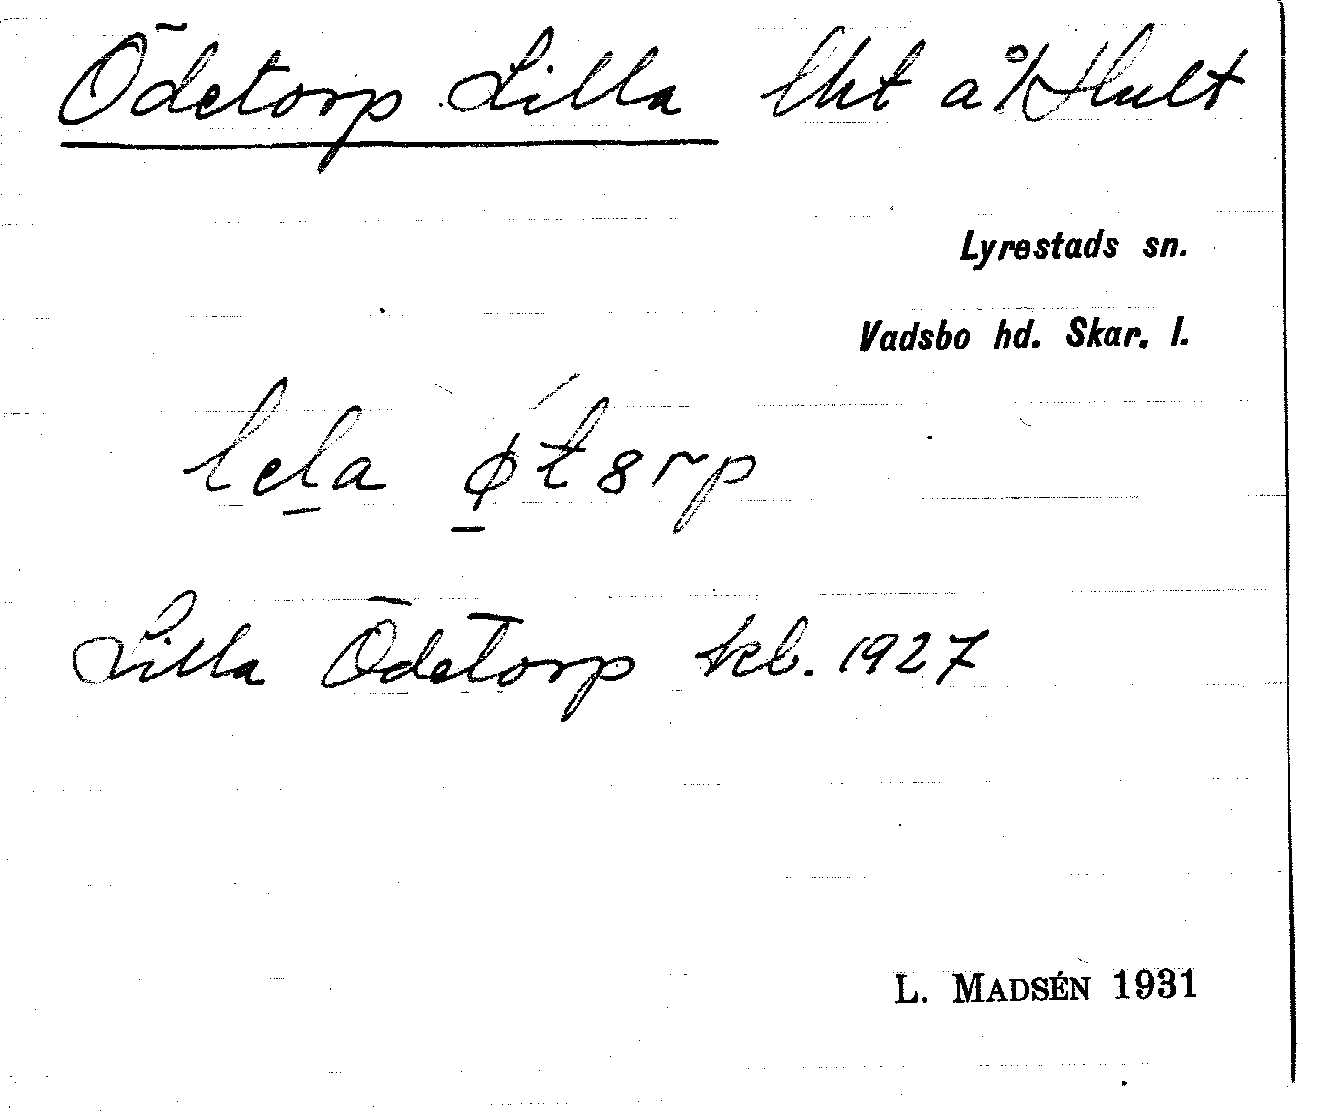 Ödetorp Lilla lht å 1/1 Hult
Lyrestads sn.
Vadsbo hd. Skar. l.
lela øtərp
Lilla Ödetorp kb. 1927
L. MADSÉN 1931